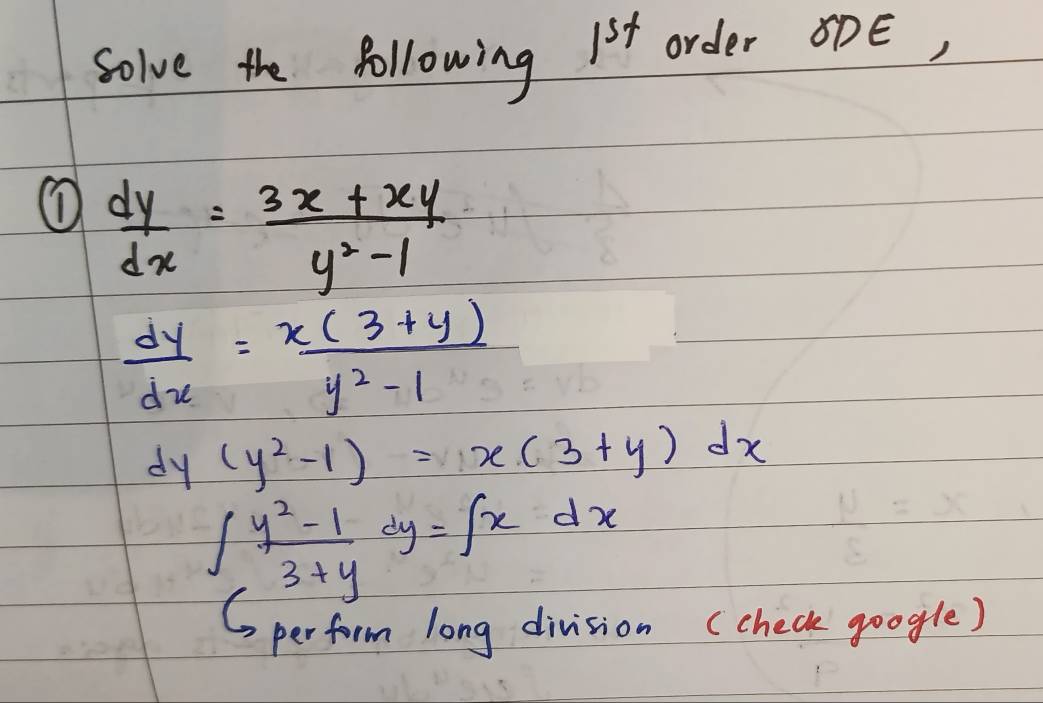 Solve the following 1st order ODE,
① dy/dx = (3x + xy)/(y² - 1)
dy/dx = x(3 + y)/(y² - 1)
dy (y² - 1) = x(3 + y) dx
∫ (y² - 1)/(3 + y) dy = ∫ x dx
↳ perform long division (check google)